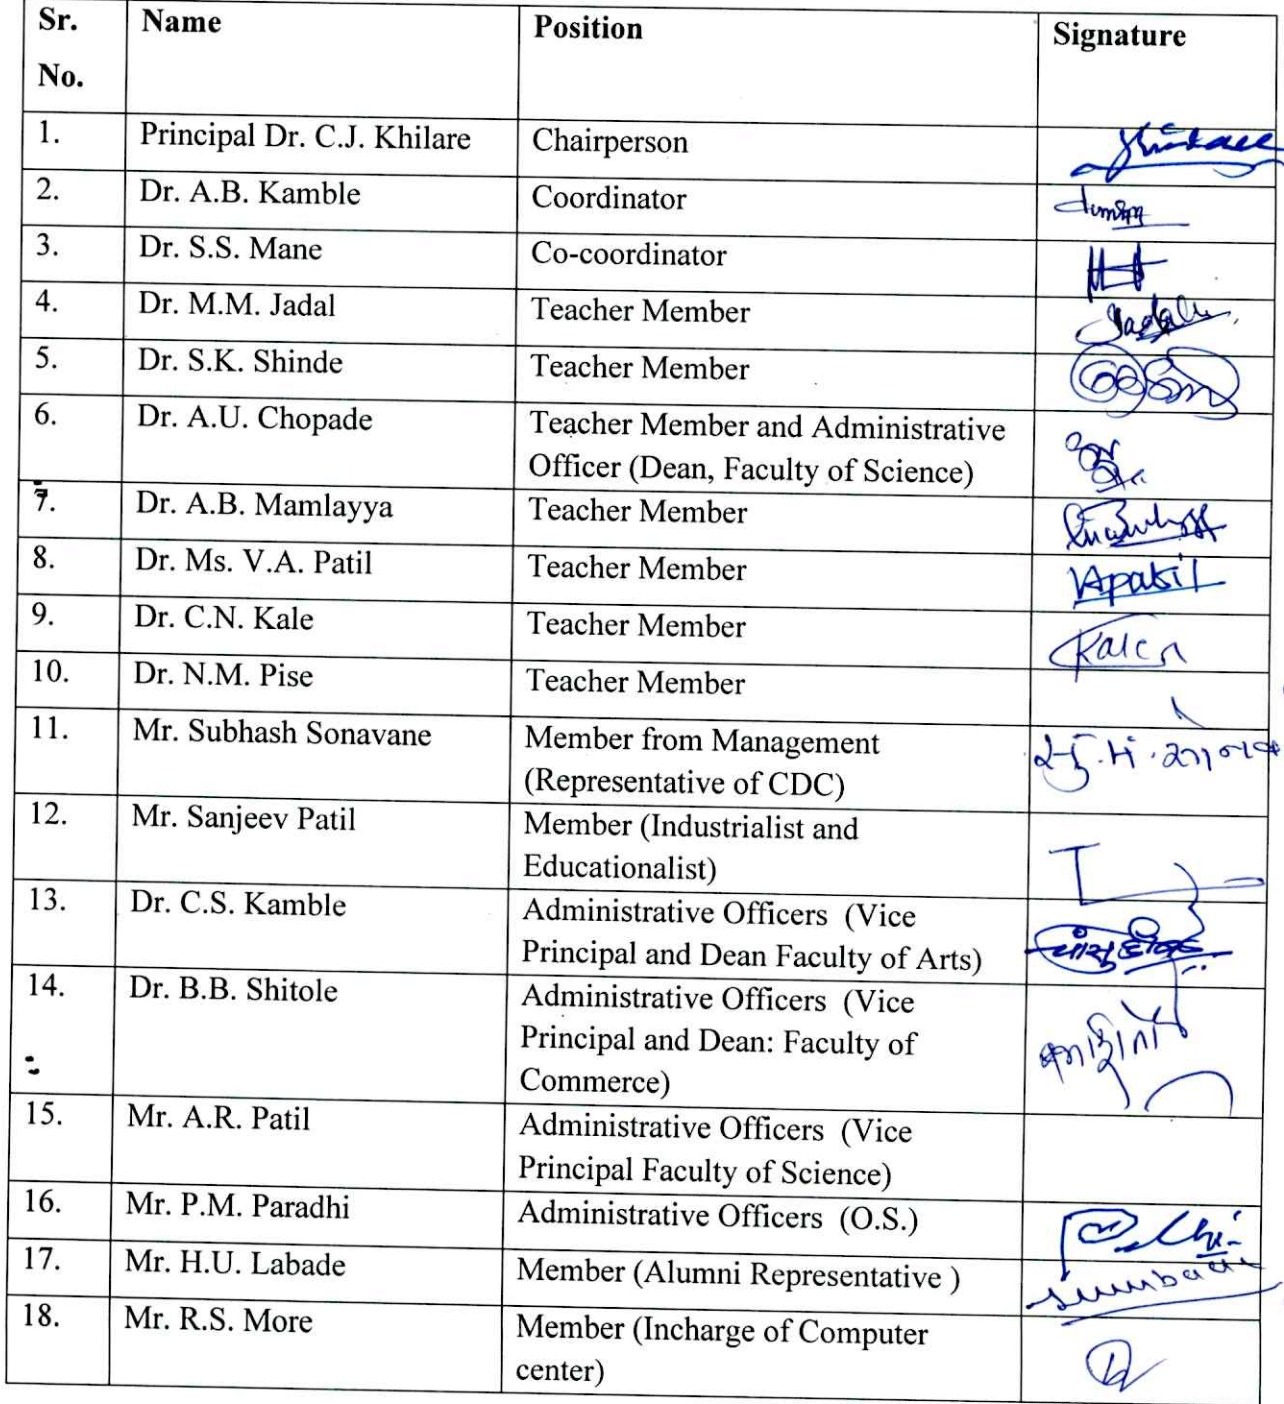 Sr. No. Name Position Signature
1. Principal Dr. C.J. Khilare Chairperson
2. Dr. A.B. Kamble Coordinator
3. Dr. S.S. Mane Co-coordinator
4. Dr. M.M. Jadal Teacher Member
5. Dr. S.K. Shinde Teacher Member
6. Dr. A.U. Chopade Teacher Member and Administrative
Officer (Dean, Faculty of Science)
7. Dr. A.B. Mamlayya Teacher Member
8. Dr. Ms. V.A. Patil Teacher Member VApatil
9. Dr. C.N. Kale Teacher Member
10. Dr. N.M. Pise Teacher Member
11. Mr. Subhash Sonavane Member from Management
(Representative of CDC)
12. Mr. Sanjeev Patil Member (Industrialist and
Educationalist)
13. Dr. C.S. Kamble Administrative Officers (Vice
Principal and Dean Faculty of Arts)
14. Dr. B.B. Shitole Administrative Officers (Vice
Principal and Dean: Faculty of
Commerce)
15. Mr. A.R. Patil Administrative Officers (Vice
Principal Faculty of Science)
16. Mr. P.M. Paradhi Administrative Officers (O.S.)
17. Mr. H.U. Labade Member (Alumni Representative )
18. Mr. R.S. More Member (Incharge of Computer
center)